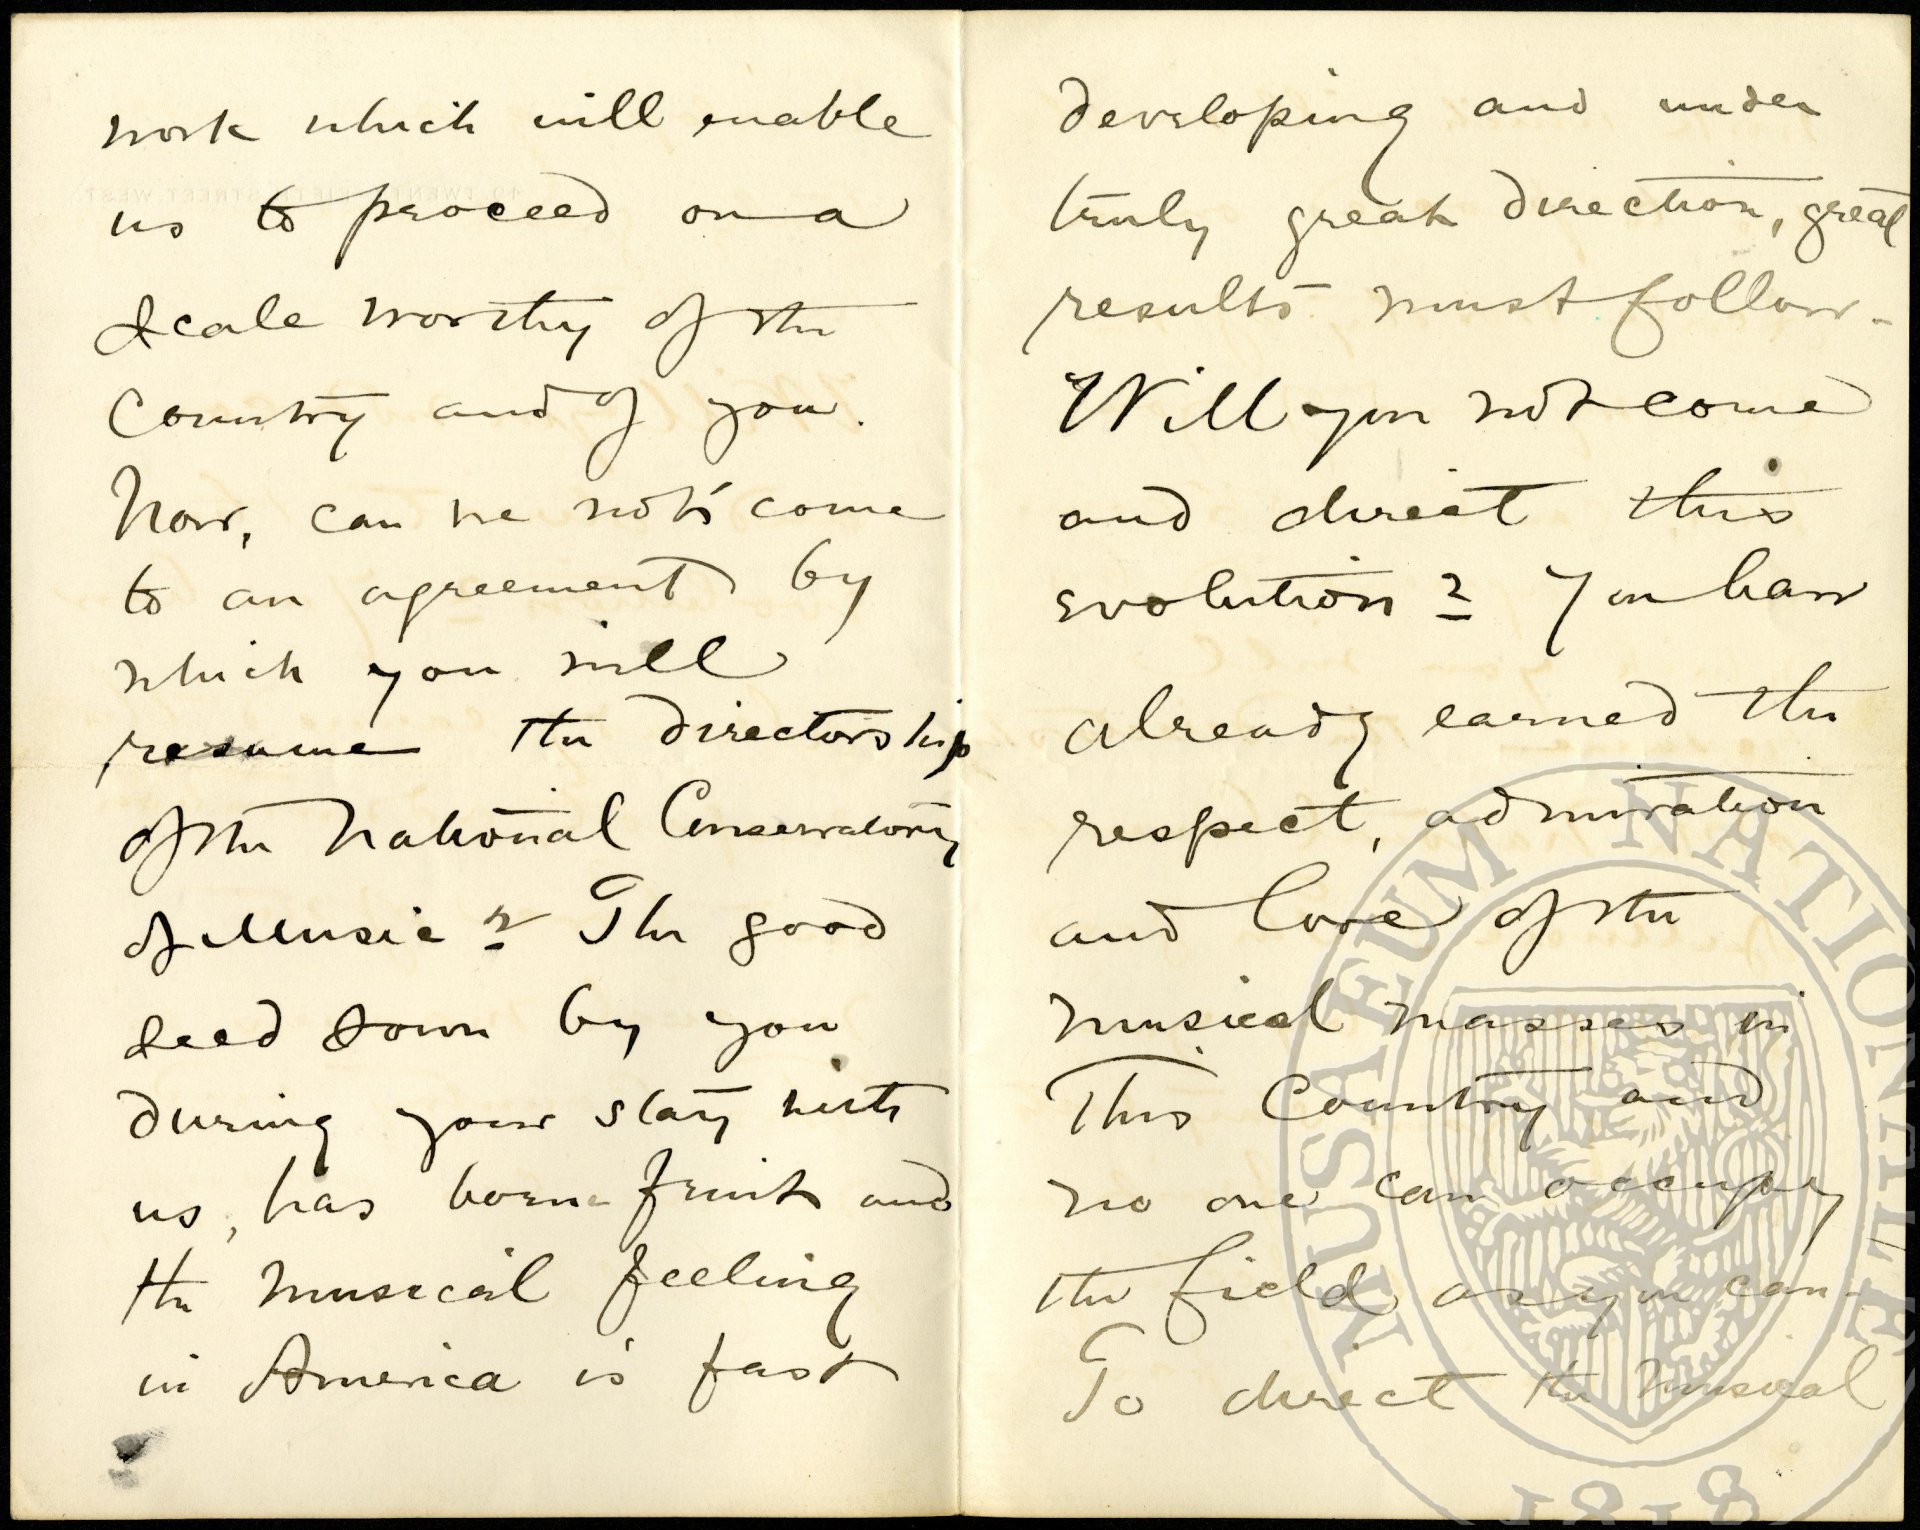 work which will enable
us to proceed on a
scale worthy of the
Country and of you.
Now, can we not come
to an agreement by
which you will
resume the directorship
of the National Conservatory
of Music? The good
seed sown by you
during your stay with
us, has borne fruit and
the musical feeling
in America is fast
developing and under
truly great direction, great
results must follow.
Will you not come
and direct this
evolution? You have
already earned the
respect, admiration
and love of the
musical masses in
This Country and
no one can occupy
the field as you can.
To direct the musical
MUSAEUM NATIONALE
1818